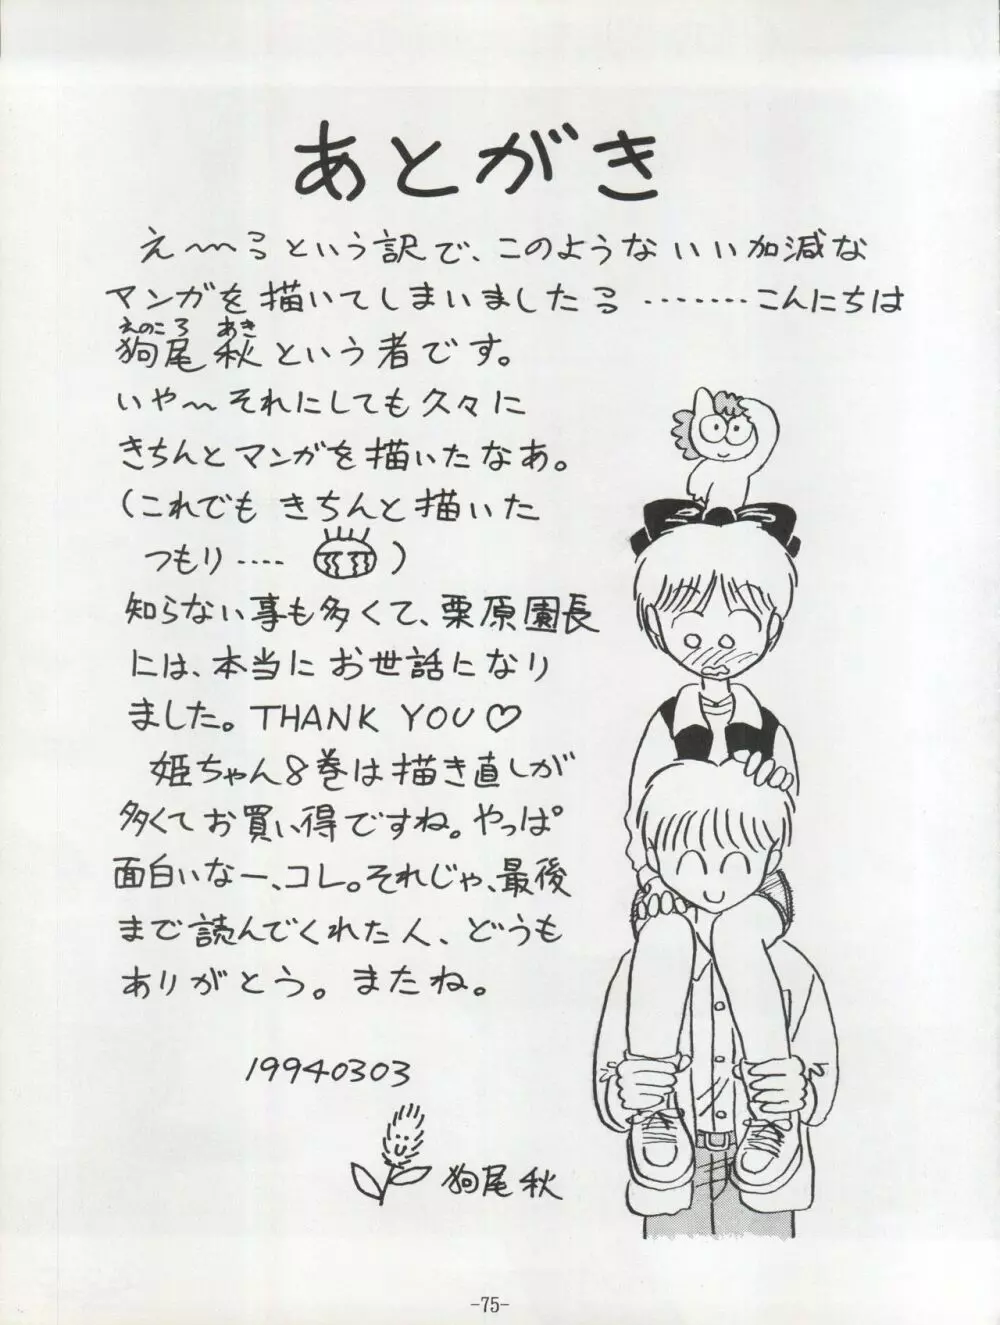 あとがき
え〜〜っという訳で、このようないい加減な
マンガを描いてしまいましたっ ‥‥‥‥こんにちは
えのころ あき
狗尾 秋という者です。
いや〜それにしても久々に
きちんとマンガを描いたなあ。
(これでも きちんと描いた
つもり‥‥ )
知らない事も多くて、栗原園長
には、本当に お世話になり
ました。THANK YOU♡
姫ちゃん8巻は描き直しが
多くてお買い得ですね。やっぱ
面白いなー、コレ。それじゃ、最後
まで読んでくれた人、どうも
ありがとう。またね。
19940303
狗尾 秋
-75-